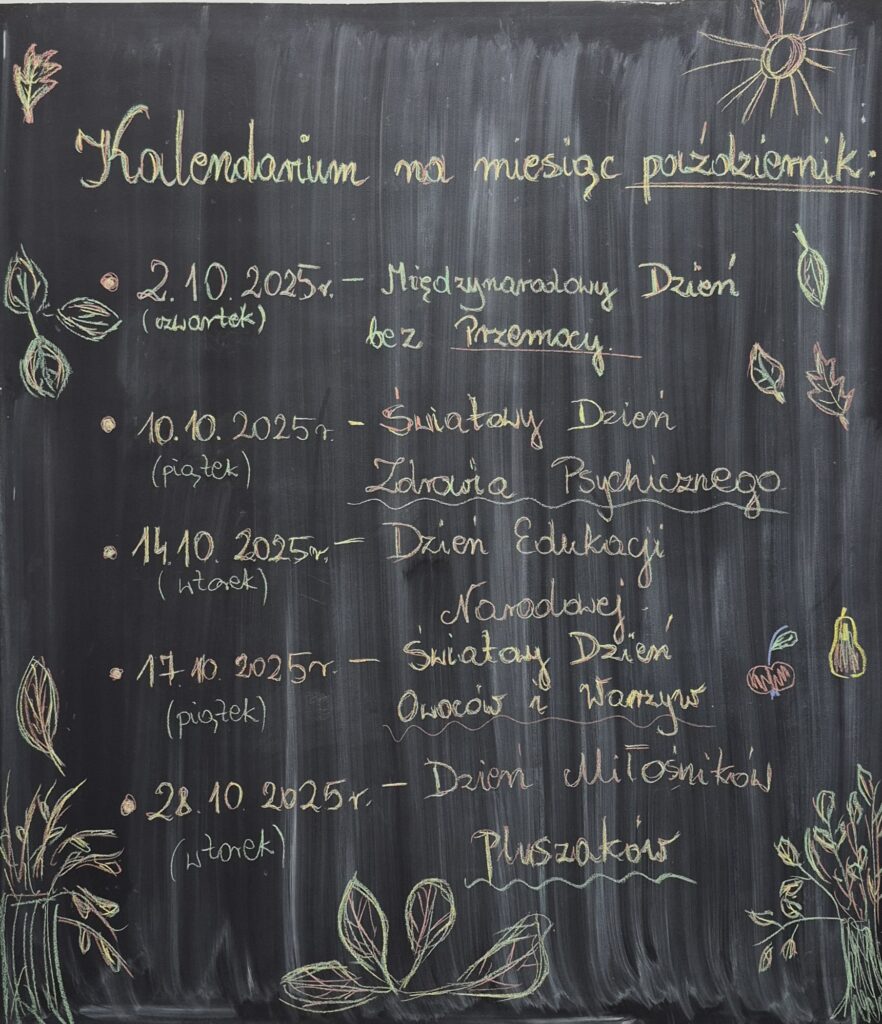 Kalendarium na miesiąc październik:
• 2.10.2025r. – Międzynarodowy Dzień
(czwartek) bez Przemocy.
• 10.10.2025r. – Światowy Dzień
(piątek) Zdrowia Psychicznego
• 14.10.2025r. – Dzień Edukacji
(wtorek) Narodowej.
• 17.10.2025r. – Światowy Dzień
(piątek) Owoców i Warzyw.
• 28.10.2025r. – Dzień Miłośników
(wtorek) Pluszaków